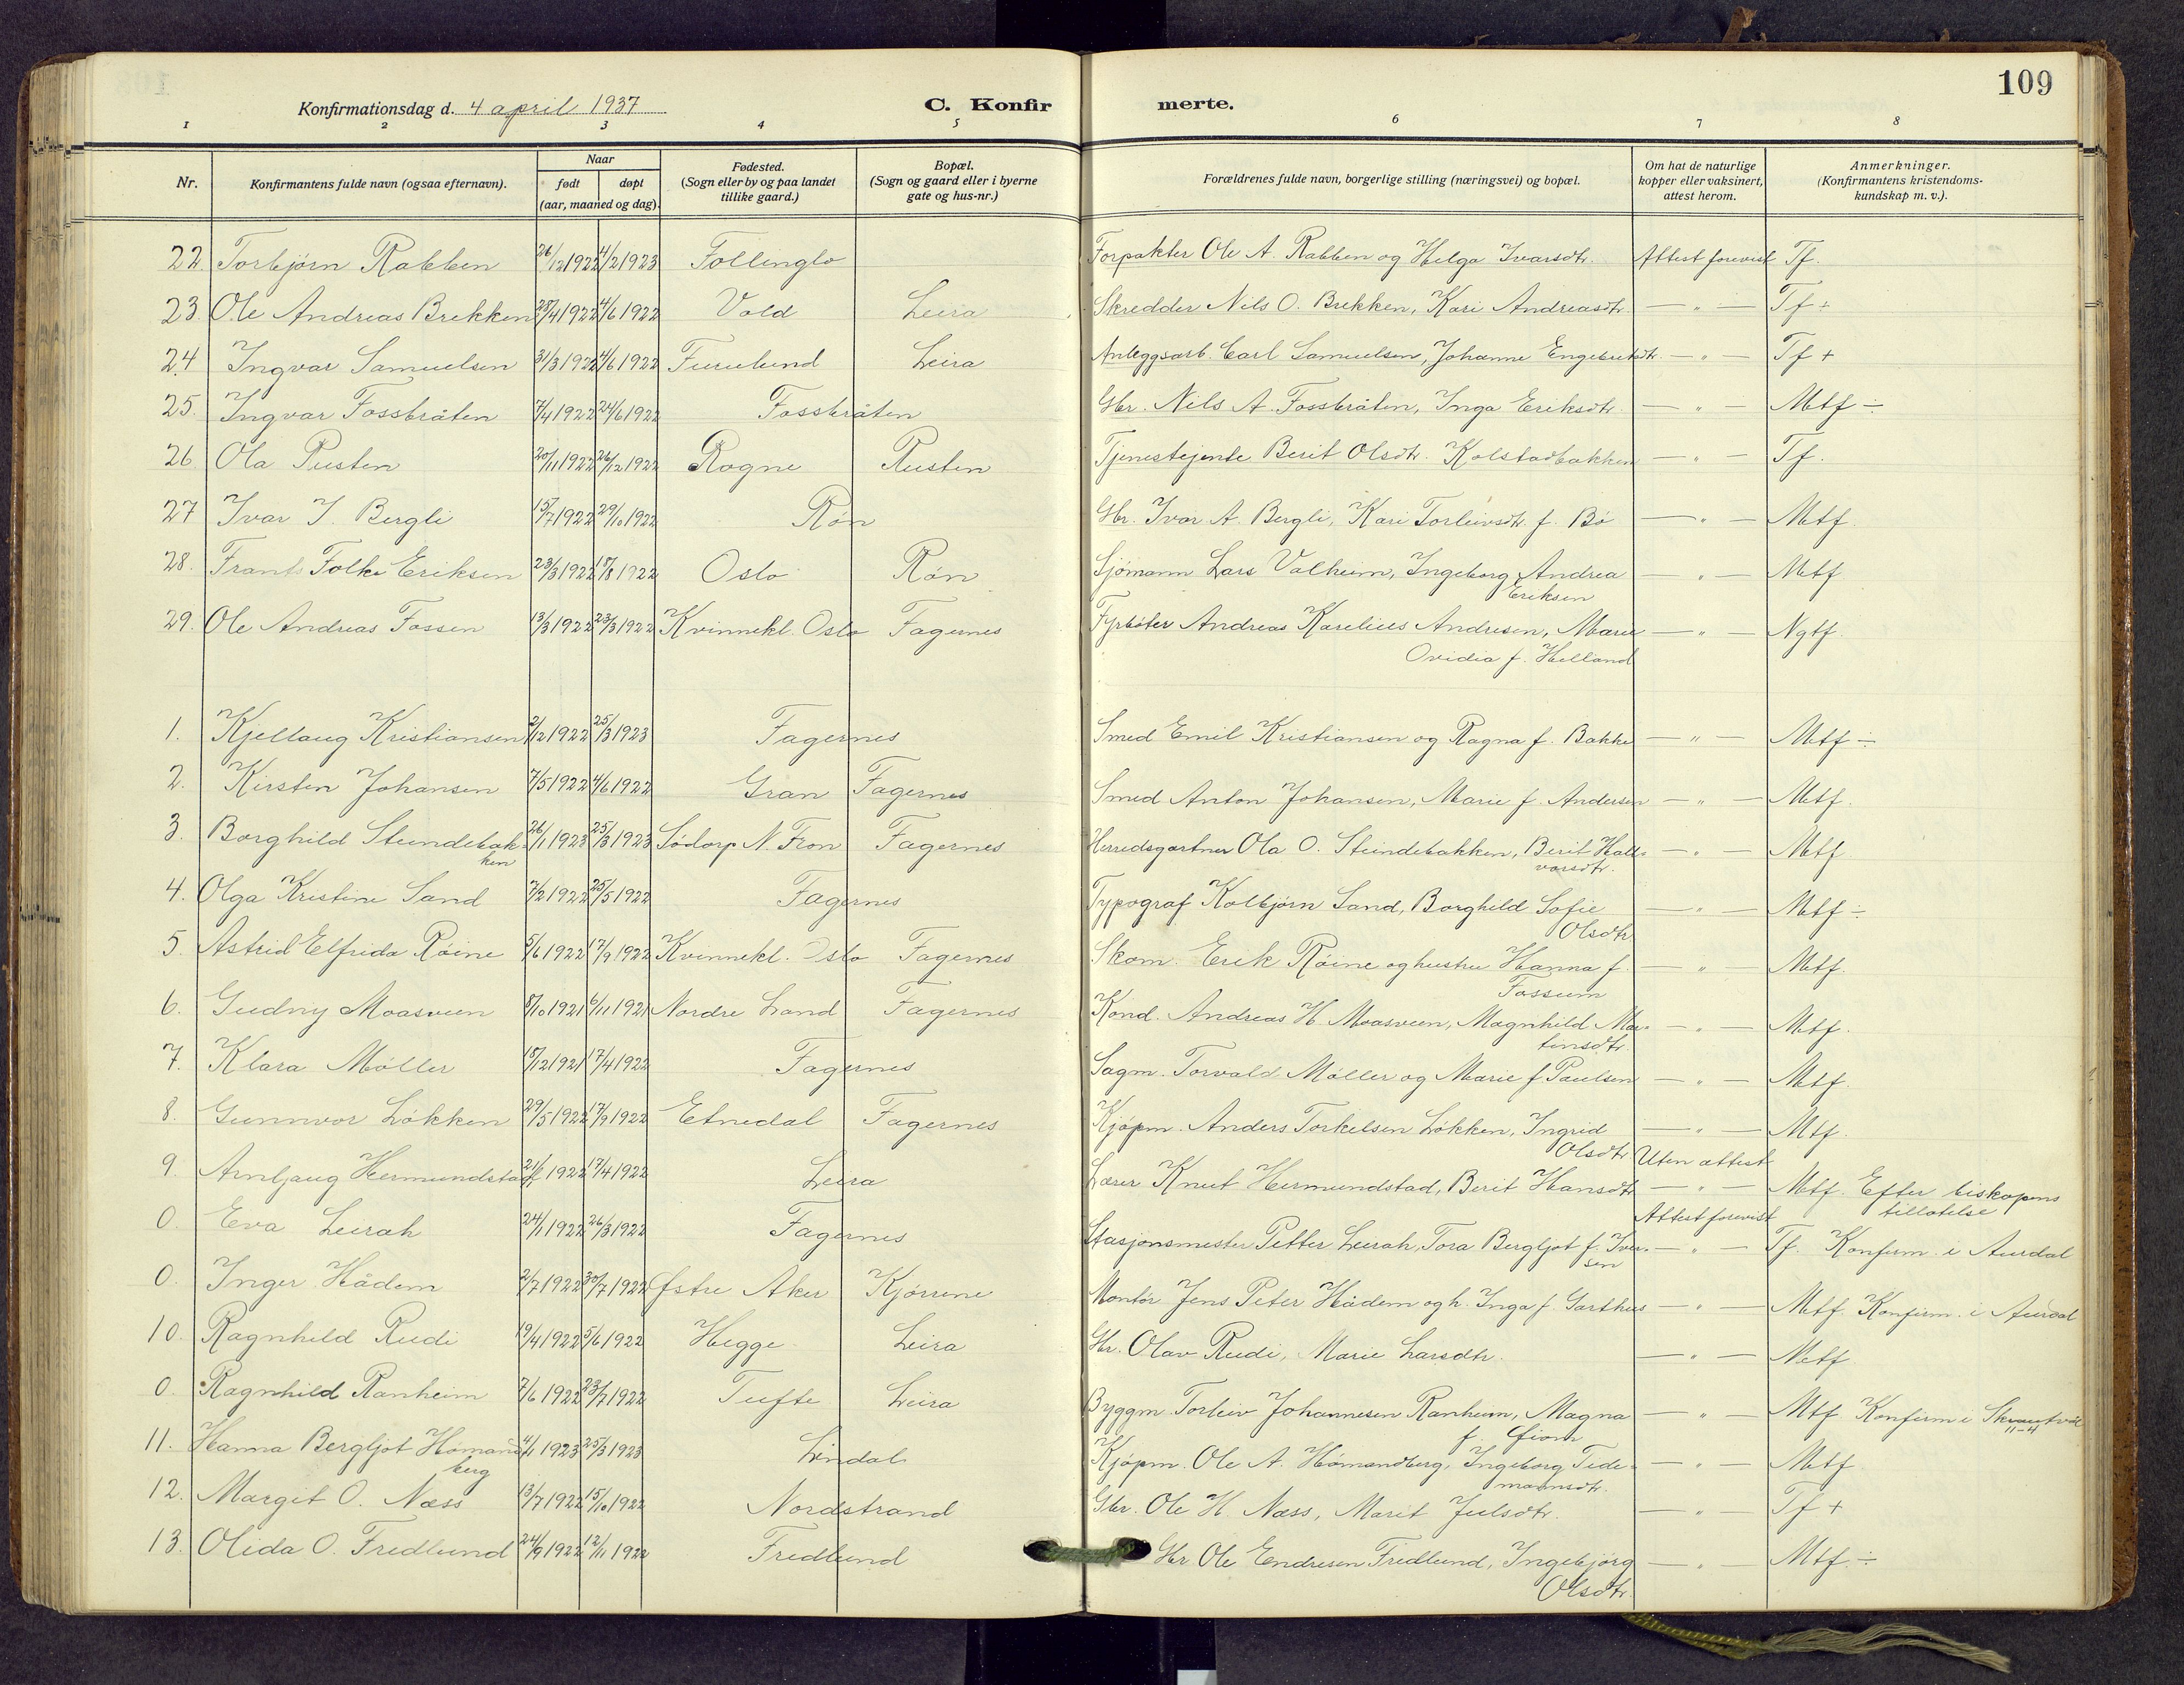 109
Konfirmationsdag d. 4 april 1937
C. Konfir merte.
1 2 3 4 5 6 7 8
Nr. Konfirmantens fulde navn (ogsaa efternavn). Naar født døpt (aar, maaned og dag). Fødested. (Sogn eller by og paa landet tillike gaard.) Bopæl. (Sogn og gaard eller i byerne gate og hus-nr.) Forældrenes fulde navn, borgerlige stilling (næringsvei) og bopæl. Om hat de naturlige kopper eller vaksinert, attest herom. Anmerkninger. (Konfirmantens kristendoms-kundskap m. v.).
22. Torbjörn Rabben 26/12 1922 4/2 1923 Follinglo Forpakter Ole A. Rabben og Helga Ivarsdtr. Attest forevist Tf.
23. Ole Andreas Brekken 28/4 1922 4/6 1922 Vold Leira Skredder Nils O. Brekken, Kari Andreasdtr. — " — Tf +
24 Ingvar Samuelsen 31/3 1922 4/6 1922 Furulund Leira Anleggsarb. Carl Samuelsen, Johanne Engebretsdtr. — " — Tf +
25. Ingvar Fossbråten 7/4 1922 24/6 1922 Fossbråten Gbr. Nils A. Fossbråten, Inga Eriksdtr. — " — Mtf ÷
26. Ola Rusten 20/11 1922 26/12 1922 Rogne Rusten Tjenestejente Berit Olsdtr. Kolstadbakken — " — Tf.
27 Ivar I. Bergli 15/7 1922 29/10 1922 Røn Gbr. Ivar A. Bergli, Kari Torleivsdtr. f. Bö — " — Mtf.
28. Frants Folke Eriksen 23/3 1922 1922 Oslo Røn Sjömann Lars Valheim, Ingeborg Andrea — " — Mtf
Eriksen
29. Ole Andreas Fossen 13/3 1922 23/3 1922 Kvinnekl. Oslo Fagernes Fyrböter Andreas Karelius Andresen, Marie — " — Ngtf.
Ovidia f. Helland
1. Kjellaug Kristiansen 2/12 1922 25/3 1923 Fagernes Smed Emil Kristiansen og Ragna f. Bakke — " — Mtf ÷
2. Kirsten Johansen 7/5 1922 4/6 1922 Gran Fagernes Smed Anton Johansen, Marie f. Andersen — " — Mtf.
3. Borghild Steindebak- 26/1 1923 25/3 1923 Södorp N. Fron Fagernes Herredsgartner Ola O. Steindebakken, Berit Hall- — " — Mtf.
ken varsdtr.
4. Olga Kristine Sand 7/2 1922 25/5 1922 Fagernes Typograf Kolbjörn Sand, Borghild Sofie — " — Mtf ÷
Olsdtr
5. Astrid Elfrida Röine 5/6 1922 17/9 1922 Kvinnekl. Oslo Fagernes Skom. Erik Röine og hustru Hanna f. — " — Mtf.
Fossum
6. Gudny Moasveen 8/10 1921 6/11 1921 Nordre Land Fagernes Kond. Andreas H. Moasveen, Magnhild Mar- — " — Mtf.
tinsdtr.
7. Klara Möller 18/12 1921 17/4 1922 Fagernes Sagm. Torvald Möller og Marie f. Paulsen — " — Mtf.
8. Gunnvor Lökken 29/5 1922 17/9 1922 Etnedal Fagernes Kjöpm. Anders Torkelsen Lökken, Ingrid — " — Mtf.
Olsdtr Uten attest
9. Arnljaug Hermundstad 1922 17/4 1922 Leira Lærer Knut Hermundstad, Berit Hansdtr — " — Mtf. Efter biskopens
Attest forevist tillatelse
0. Eva Leirah 24/1 1922 26/3 1922 Fagernes Stasjonsmester Petter Leirah, Tora Bergljot f. Iver- — " — Tf. Konfirm. i Aurdal
sen
0. Inger Hådem 2/7 1922 30/7 1922 Østre Aker Kjörrene Montör Jens Peter Hådem og h. Inga f. Garthus — " — Mtf. Konfirm. i Aurdal
10. Ragnhild Rudi 19/4 1922 5/6 1922 Hegge Leira Gbr. Olav Rudi, Marie Larsdtr. — " — Mtf
0. Ragnhild Ranheim 7/6 1922 23/7 1922 Tufte Leira Byggm. Torleiv Johannesen Ranheim, Magna — " — Mtf Konfirm i Skrautvål
f. 11-4
11. Hanna Bergljot Hömand- 4/1 1923 25/3 1923 Lindal Kjöpm. Ole A. Hömandberg, Ingeborg Tide- — " — Mtf
berg mannsdtr.
12. Margit O. Næss 13/7 1922 15/10 1922 Nordstrand Gbr. Ole H Næss, Marit Julsdtr. — " — Tf +
13. Olida O. Fredlund 24/9 1922 12/11 1922 Fredlund Gbr Ole Endresen Fredlund, Ingebjörg — " — Mtf. ÷
Olsdtr